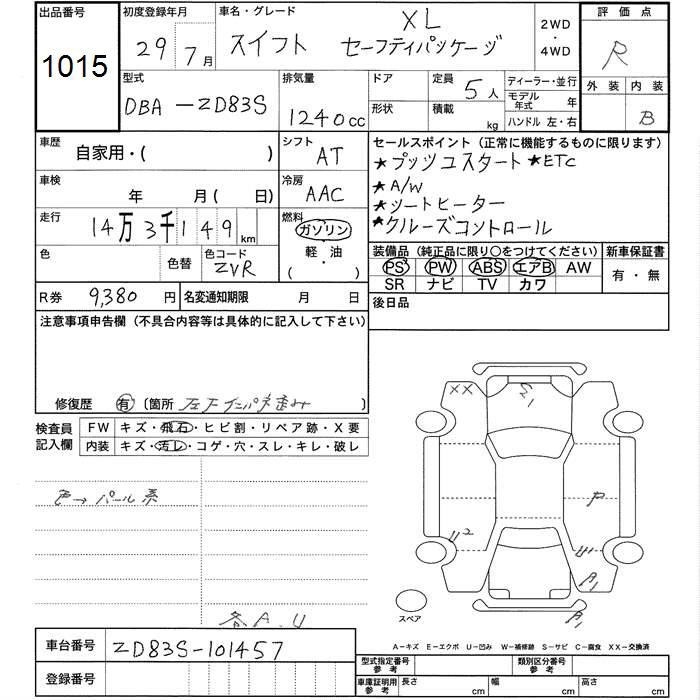 出品番号 初度登録年月 車名・グレード 2WD・4WD 評価点
1015 29年7月 スイフト XL セーフティパッケージ R
外装 内装
B
型式 排気量 ドア 定員 5人 ディーラー・並行
DBA-ZD83S 1240cc 形状 積載 kg モデル年式 年
ハンドル 左・右
車歴 自家用・( ) シフト AT
セールスポイント(正常に機能するものに限ります)
★プッツユスタート ★ETC
★A/W
★シートヒーター
★クルーズコントロール
車検 年 月( 日) 冷房 AAC
走行 14万3千149km 燃料 ガソリン・軽・油 ( )
色 色替 色コード ZVR
装備品(純正品に限り○をつけてください) 新車保証書
PS PW ABS エアB AW 有・無
SR ナビ TV カワ
R券 9,380円 名変通知期限 月 日
後日品
注意事項申告欄(不具合内容等は具体的に記入して下さい)
修復歴 有 〔箇所 左F インパネ歪み 〕
検査員記入欄 FW キズ・飛石・ヒビ割・リペア跡・X要
内装 キズ・汚レ・コゲ・穴・スレ・キレ・破レ
色→パール系
各A.U
XX
P
U2
A1
A1
スペア
A-キズ E-エクボ U-凹み W-補修跡 S-サビ C-腐食 XX-交換済
車台番号 ZD83S-101457
登録番号
型式指定番号 参考 類別区分番号 参考
車庫証明用 参考 長さ cm 幅 cm 高さ cm